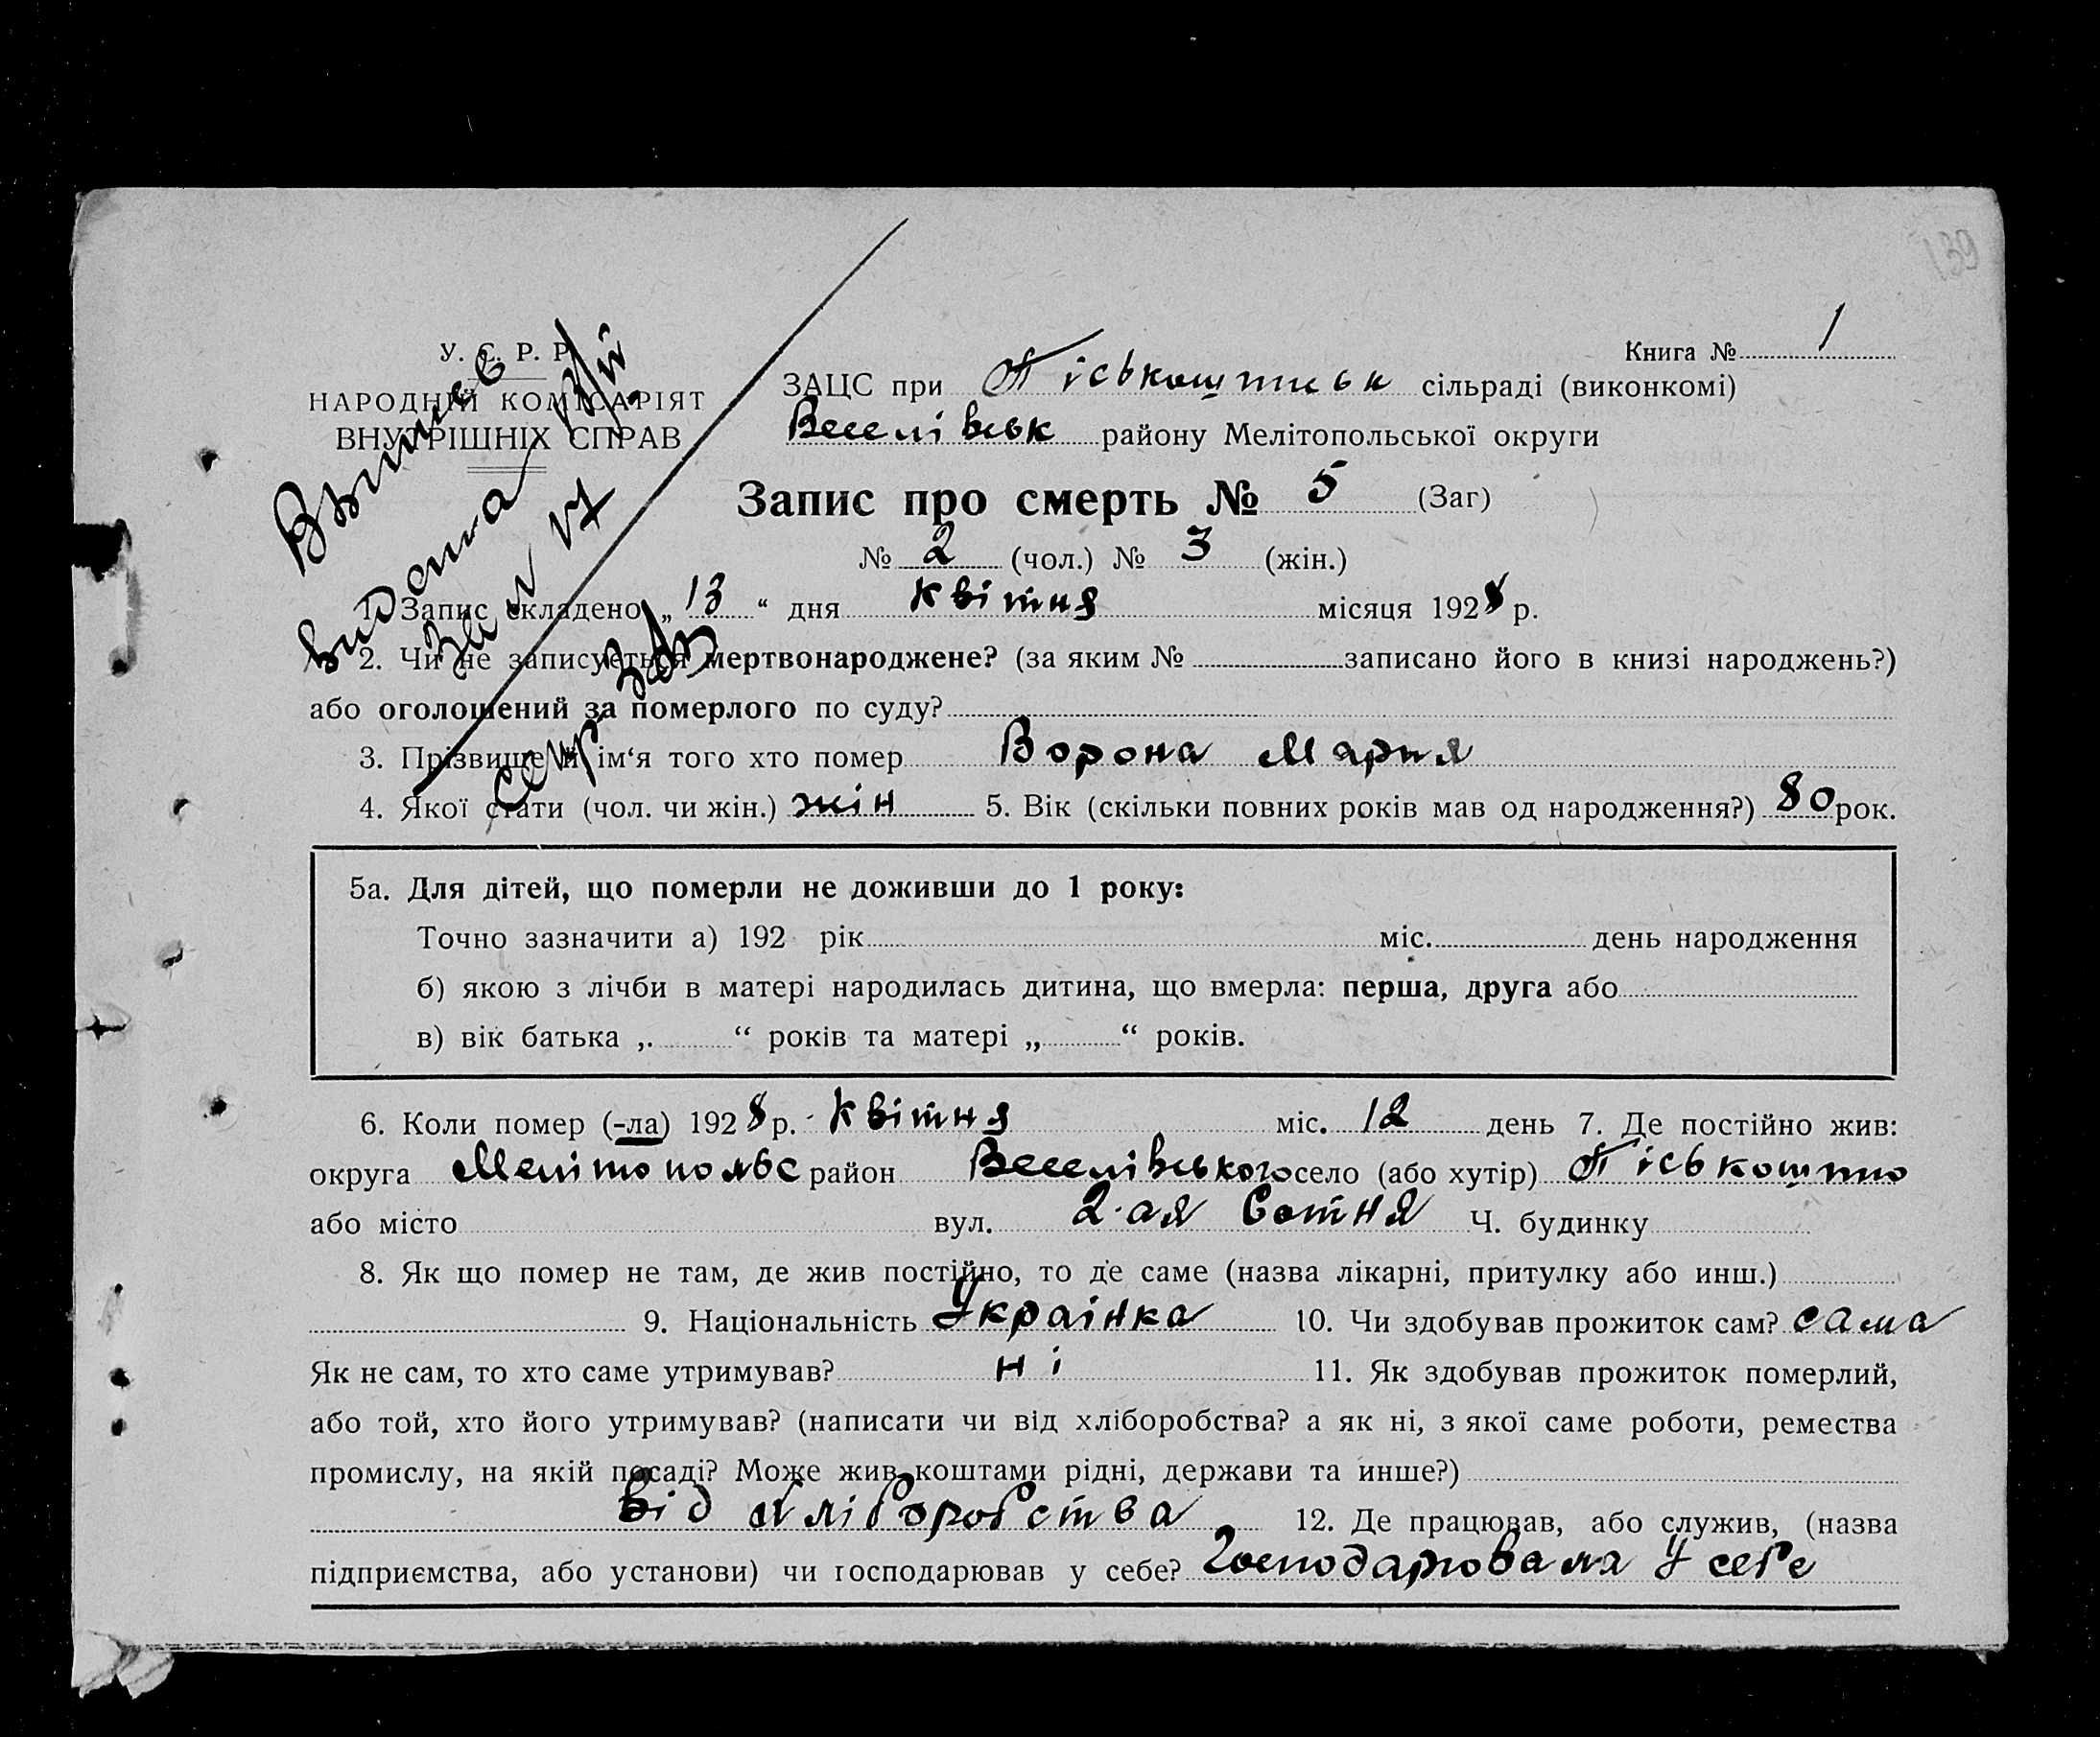 139
Книга № 1
У. С. Р. Р.
НАРОДНІЙ КОМІСАРІЯТ
ВНУТРІШНІХ СПРАВ
ЗАЦС при сільраді (виконкомі)
Веселівськ району Мелітопольської округи
Запис про смерть № 5 (Заг)
№ 2 (чол.) № 3 (жін.)
1. Запис складено „13“ дня квітня місяця 1928 р.
2. Чи не записується мертвонароджене? (за яким № записано його в книзі народжень?)
або оголошений за померлого по суду?
3. Прізвище й ім‘я того хто помер Ворона Мария
4. Якої стати (чол. чи жін.) жін 5. Вік (скільки повних років мав од народження?) 80 рок.
5а. Для дітей, що померли не доживши до 1 року:
Точно зазначити а) 192 рік міс. день народження
б) якою з лічби в матері народилась дитина, що вмерла: перша, друга або
в) вік батька „ “ років та матері „ “ років.
6. Коли помер (-ла) 1928 р. квітня міс. 12 день 7. Де постійно жив:
округа Мелітопольс район Веселівського село (або хутір)
або місто вул. 2-ая Сотня Ч. будинку
8. Як що помер не там, де жив постійно, то де саме (назва лікарні, притулку або инш.)
9. Національність Українка 10. Чи здобував прожиток сам? сама
Як не сам, то хто саме утримував? ні 11. Як здобував прожиток померлий,
або той, хто його утримував? (написати чи від хліборобства? а як ні, з якої саме роботи, ремества
промислу, на якій посаді? Може жив коштами рідні, держави та инше?)
від хліборобства 12. Де працював, або служив, (назва
підприємства, або установи) чи господарював у себе? Господарювала У себе